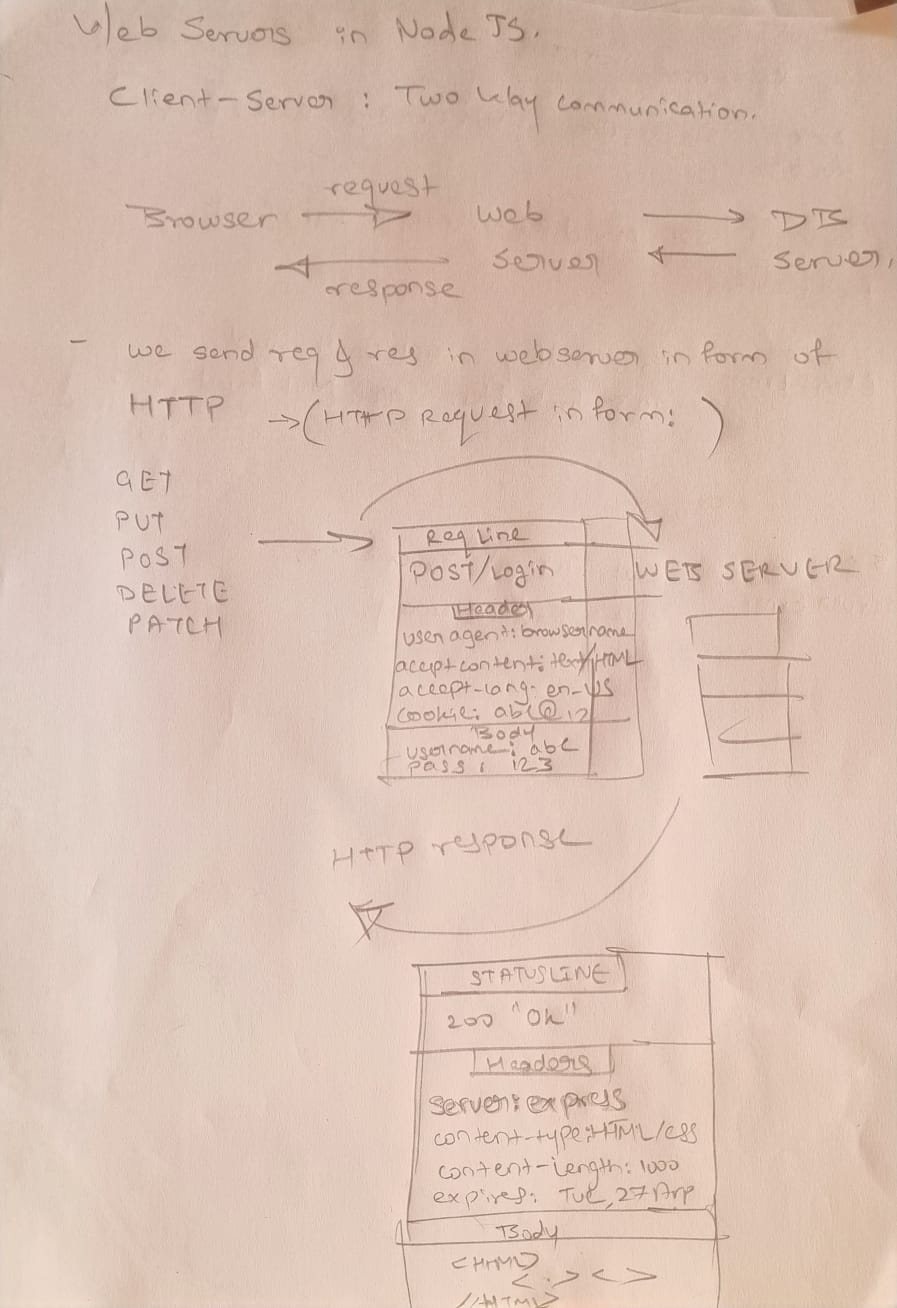 Web Servers in Node JS.
Client-Server : Two Way communication.
request
Browser
Web
Server
DB
Server.
response
- we send req & res in webserver in form of
HTTP
→ (HTTP Request in form: )
GET
PUT
POST
DELETE
PATCH
Req Line
POST/Login
WEB SERVER
Header
user agent: browser name
accept content: text/HTML
accept-lang- en-US
cookie: abc@12
Body
username: abc
pass : 123
HTTP response
STATUSLINE
200 "Ok"
Headers
server: express
content-type: HTML/css
content-length: 1000
expires: Tue, 27 Arp
Body
<HTML>
<.> < >
</HTML>